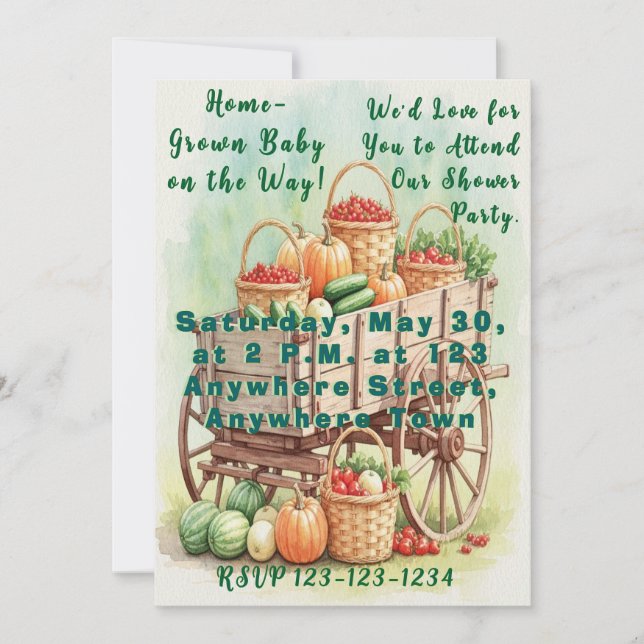 Home-
Grown Baby
on the Way!
We'd Love for
You to Attend
Our Shower
Party.
Saturday, May 30,
at 2 P.M. at 123
Anywhere Street,
Anywhere Town
RSVP 123-123-1234